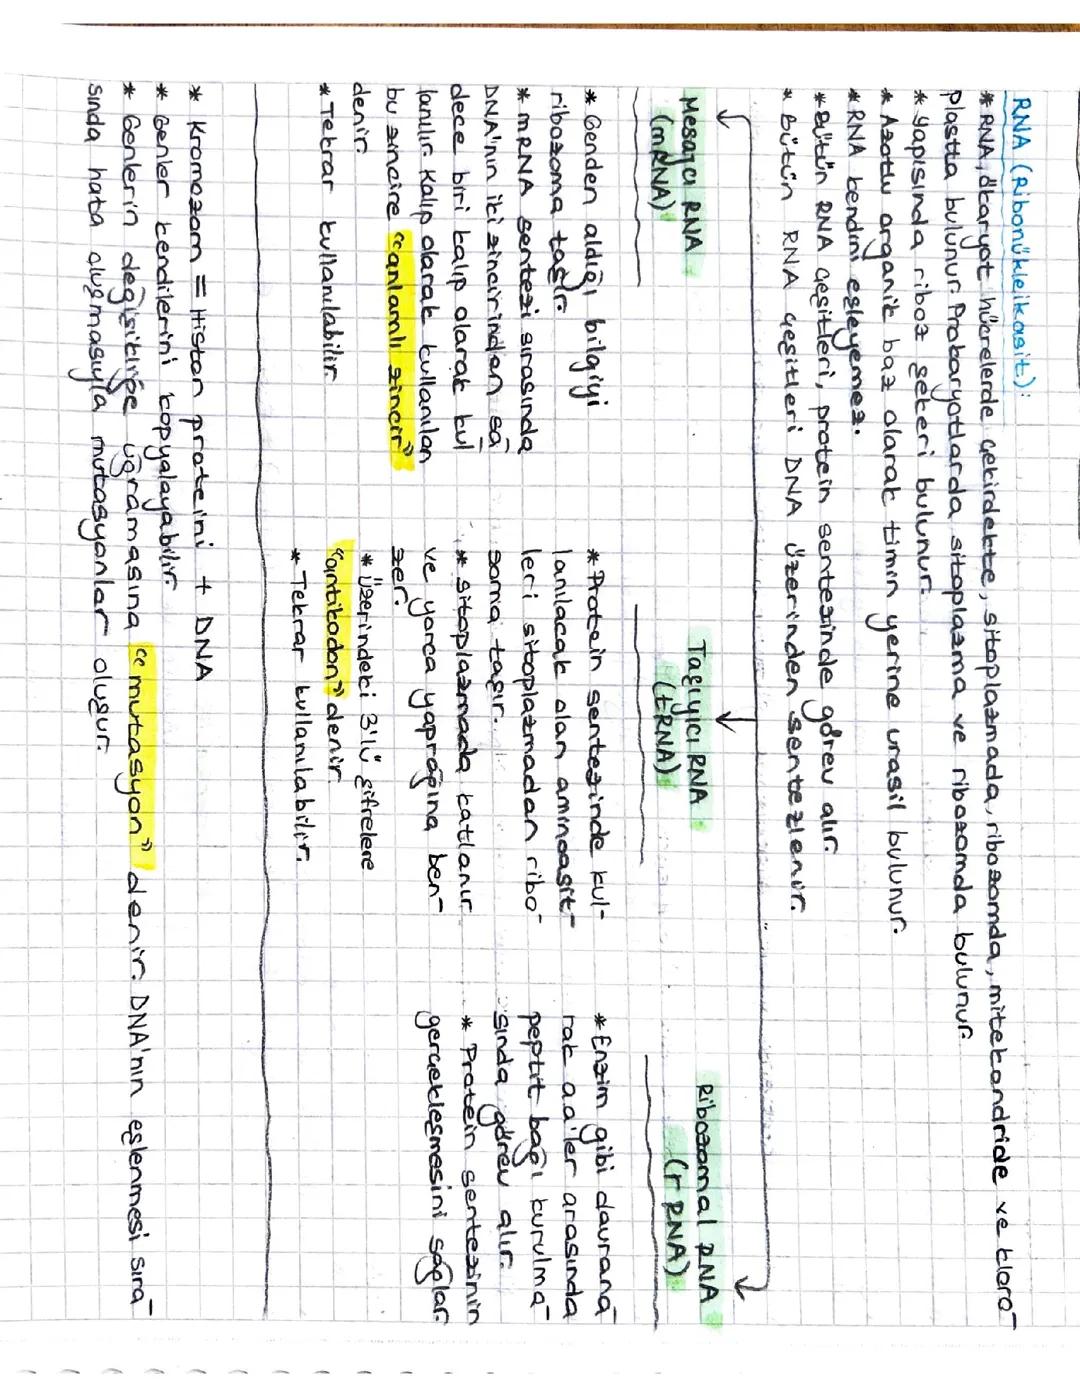 RNA (Ribonükleikasit):
* RNA, ökaryot hücrelerde çekirdekte, sitoplazmada, ribozomda, mitekondride ve kloro-
plastta bulunur. Prokaryotlarda sitoplazma ve ribozomda bulunur.
* Yapısında riboz şekeri bulunur.
* Azotlu organik baz olarak timin yerine urasil bulunur.
* RNA kendini eşleyemez.
* Bütün RNA çeşitleri, protein sentezinde görev alır.
* Bütün RNA çeşitleri DNA üzerinden sentezlenir.
Mesajcı RNA
(mRNA)
* Genden aldığı bilgiyi
ribozoma taşır.
* mRNA sentezi sırasında
DNA'nın iki zincirinden sa
dece biri kalıp olarak kul
lanılır. Kalıp olarak kullanılan
bu zincire "anlamlı zincir"
denir.
* Tekrar kullanılabilir.
Taşıyıcı RNA
(tRNA)
* Protein sentezinde kul-
lanılacak olan aminoasit-
leri sitoplazmadan ribo-
soma taşır.
* Sitoplazmada katlanır
ve yonca yaprağına ben-
zer.
* Üzerindeki 3'lü şifrelere
"antikodon" denir.
* Tekrar kullanılabilir.
Ribozomal RNA
(rRNA)
* Enzim gibi davrana-
rak aa'ler arasında
peptit bağı kurulma-
sında görev alır.
* Protein sentezinin
gerçekleşmesini sağlar.
* Kromozom = Histon proteini + DNA
* Genler kendilerini kopyalayabilir.
* Genlerin değişikliğe uğramasına "mutasyon" denir. DNA'nın eşlenmesi sıra-
sında hata oluşmasıyla mutasyonlar oluşur.